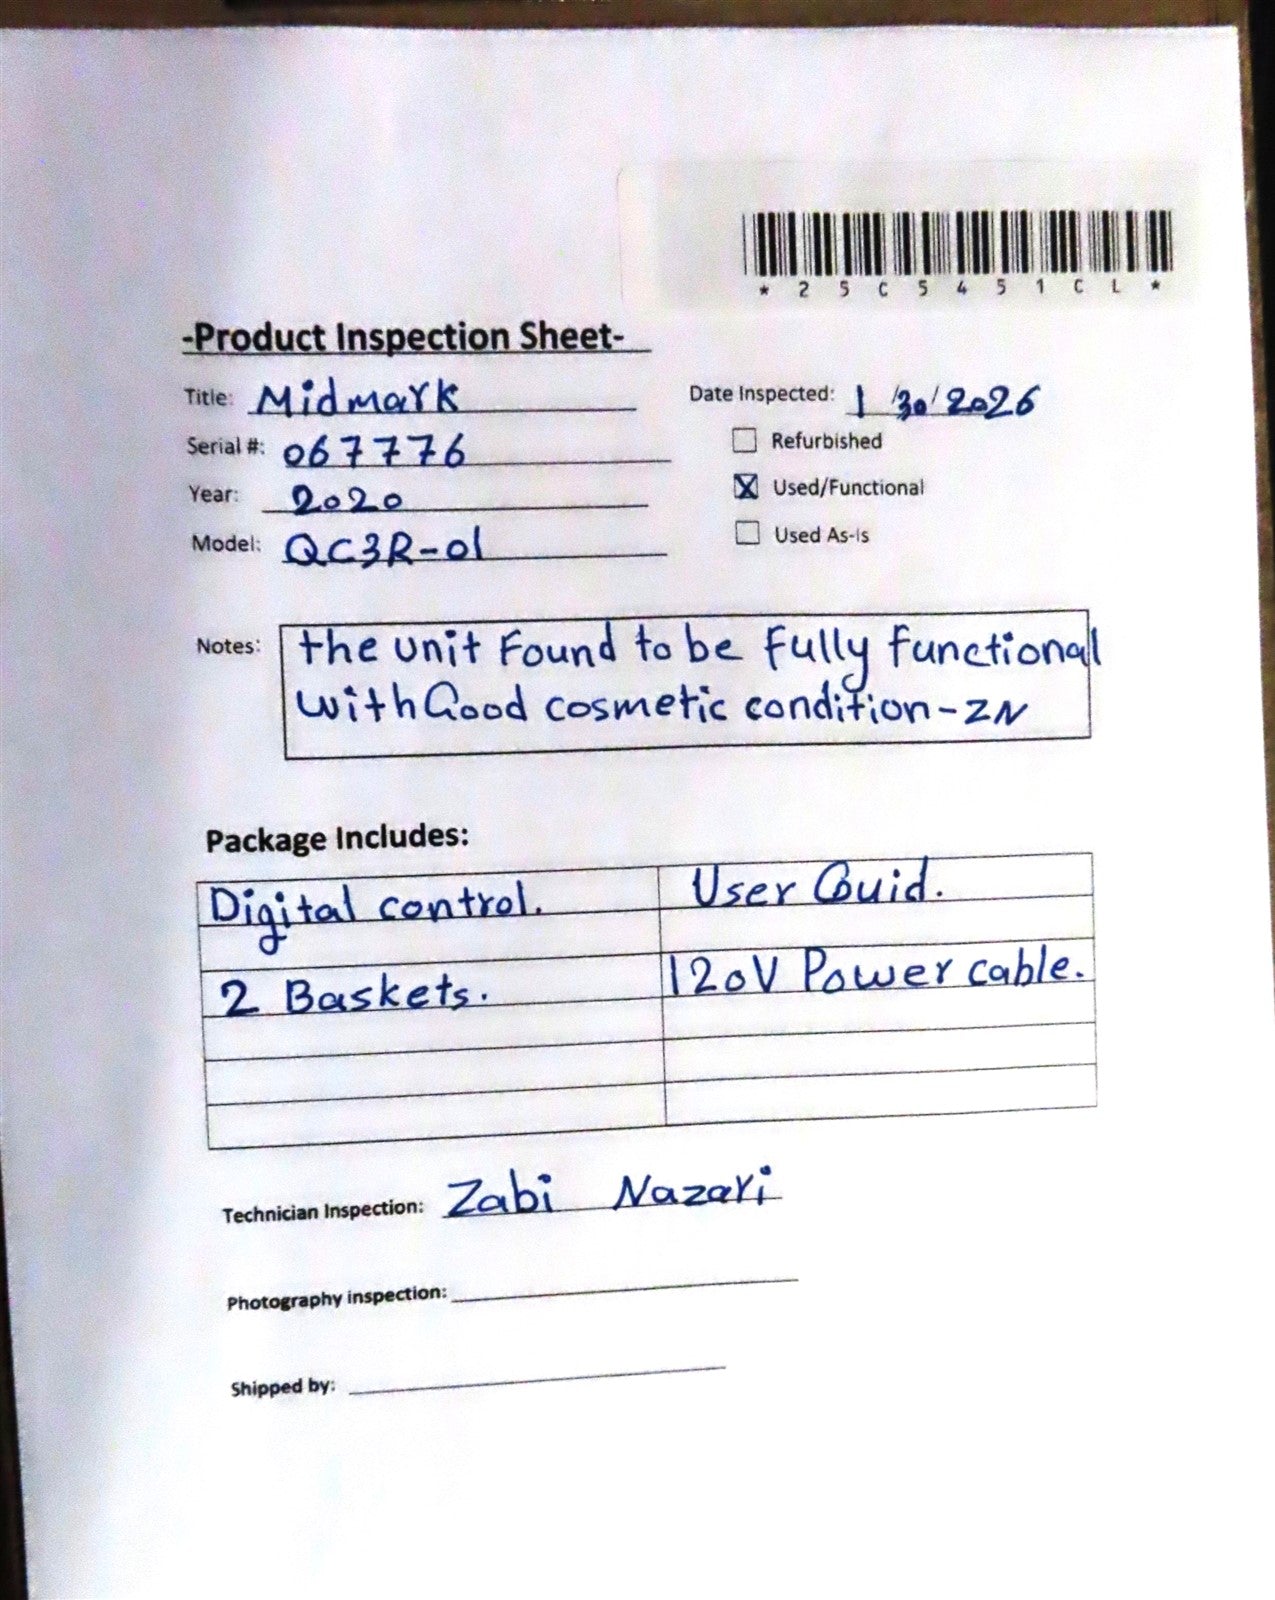 * 2 5 C 5 4 5 1 C L *
-Product Inspection Sheet-
Title: Midmark
Date Inspected: 1/30/2026
Serial #: 067776
Refurbished
Year: 2020
Used/Functional
Model: QC3R-01
Used As-Is
Notes: the unit Found to be fully functional
with Good cosmetic condition-ZN
Package Includes:
Digital control. User Guid.
2 Baskets. 120V Power cable.
Technician Inspection: Zabi Nazari
Photography inspection:
Shipped by: